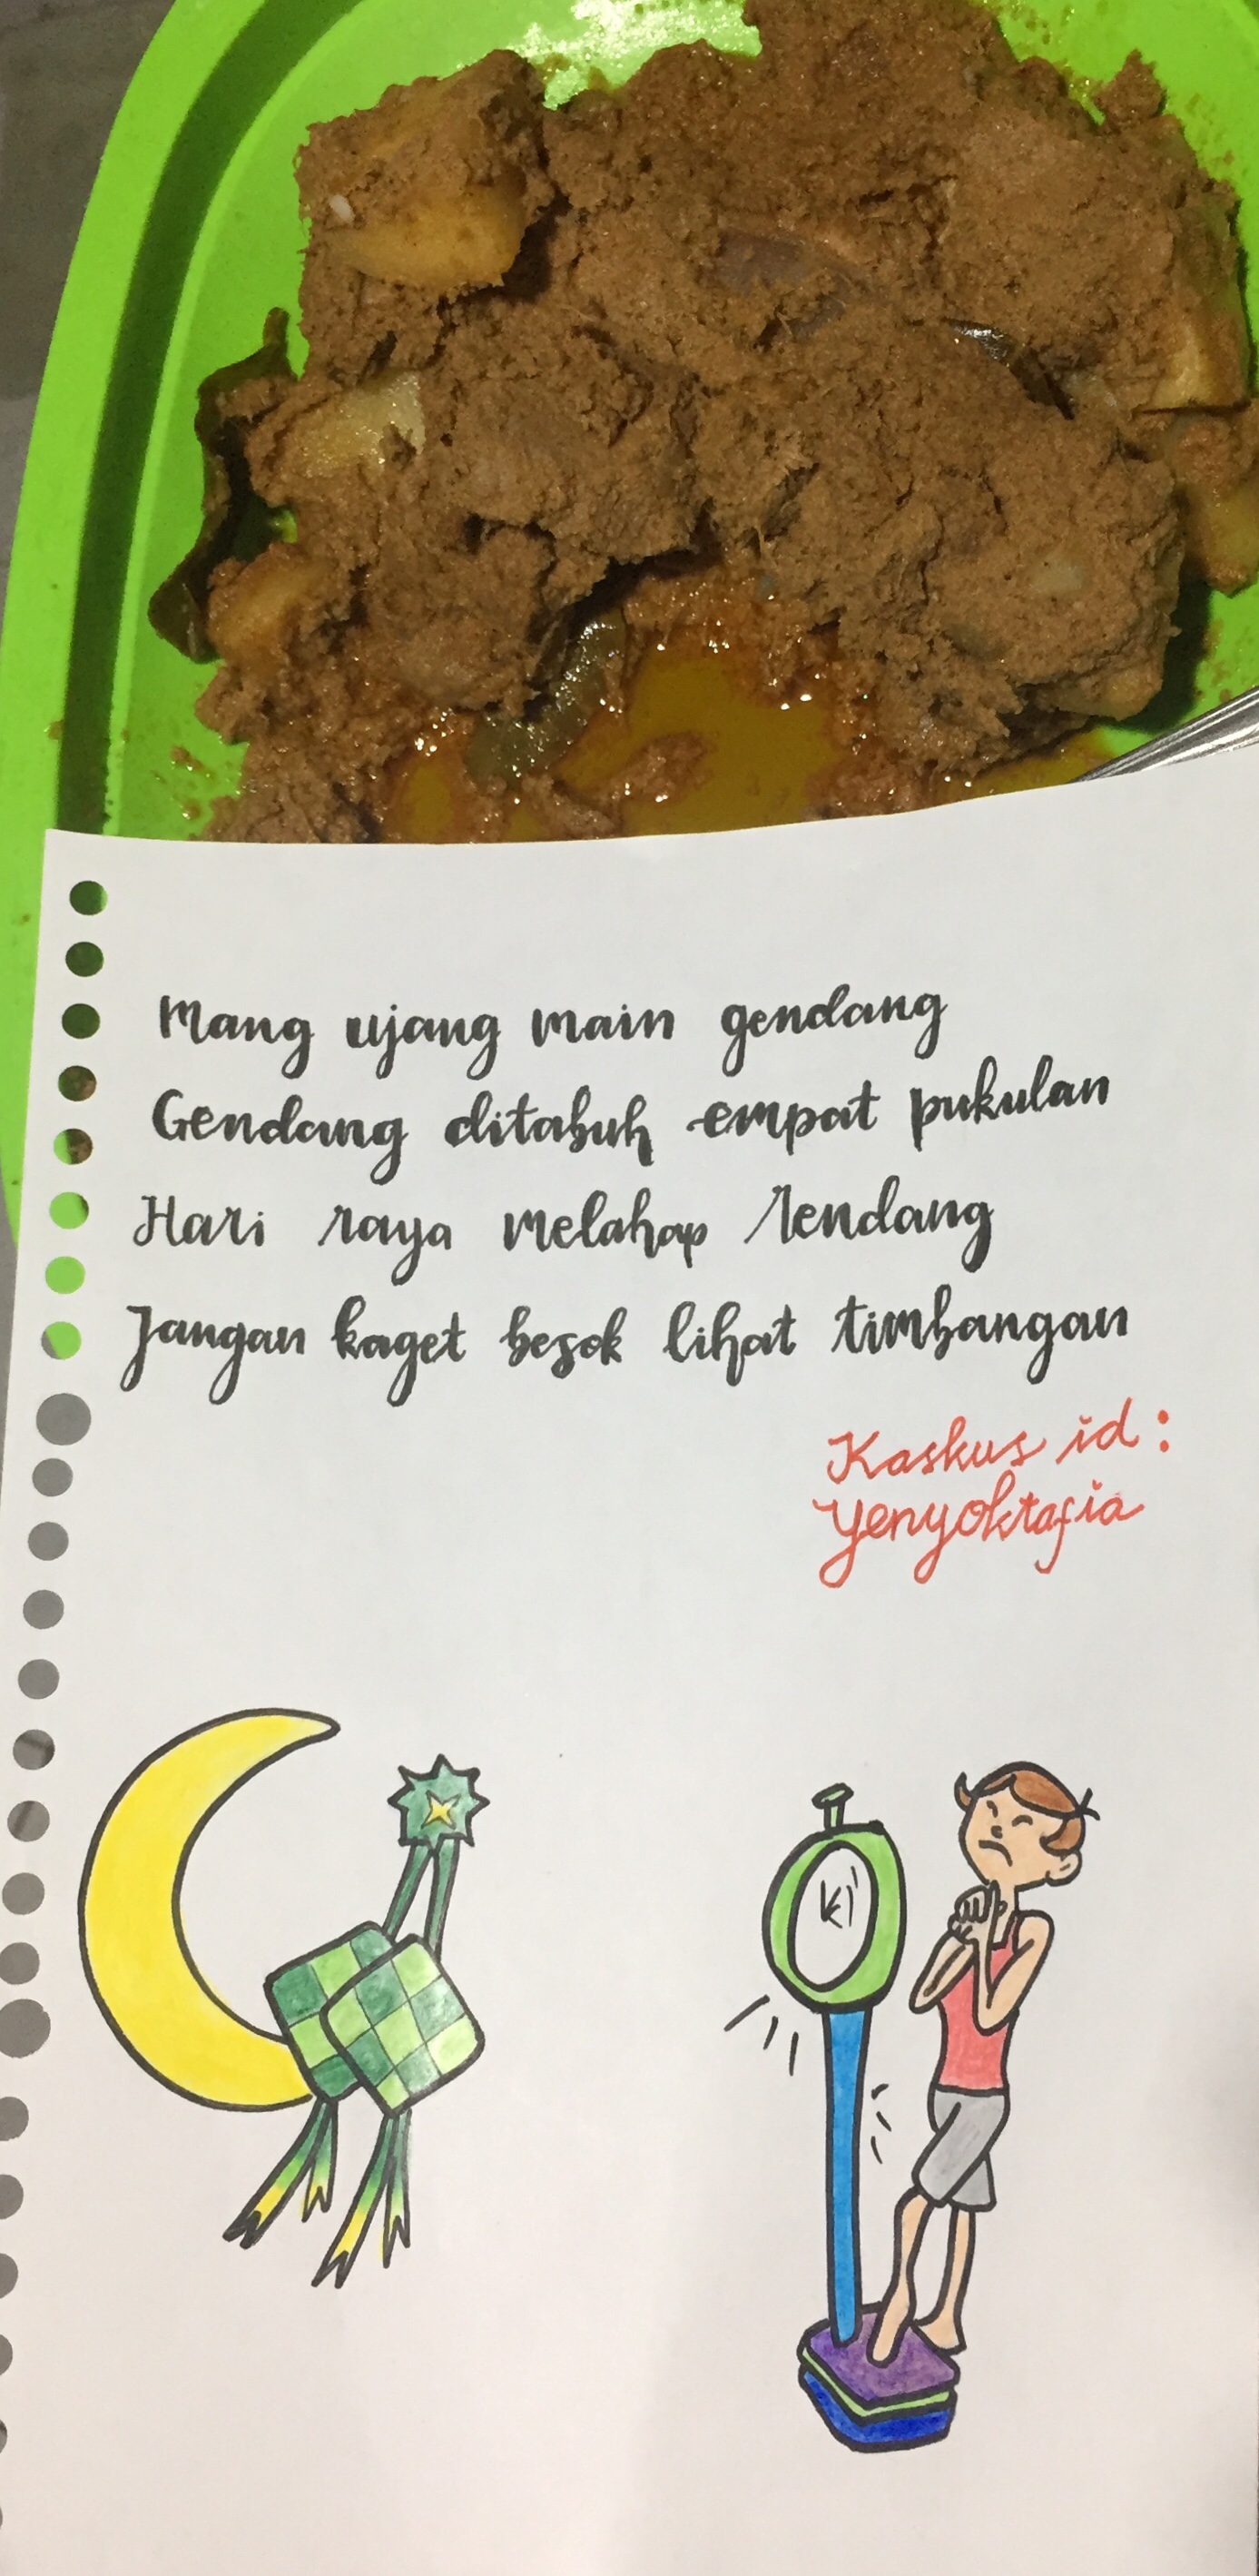 Mang ujang main gendang
Gendang ditabuh empat pukulan
Hari raya melahap rendang
Jangan kaget besok lihat timbangan
Kaskus id :
Yenyoktafia